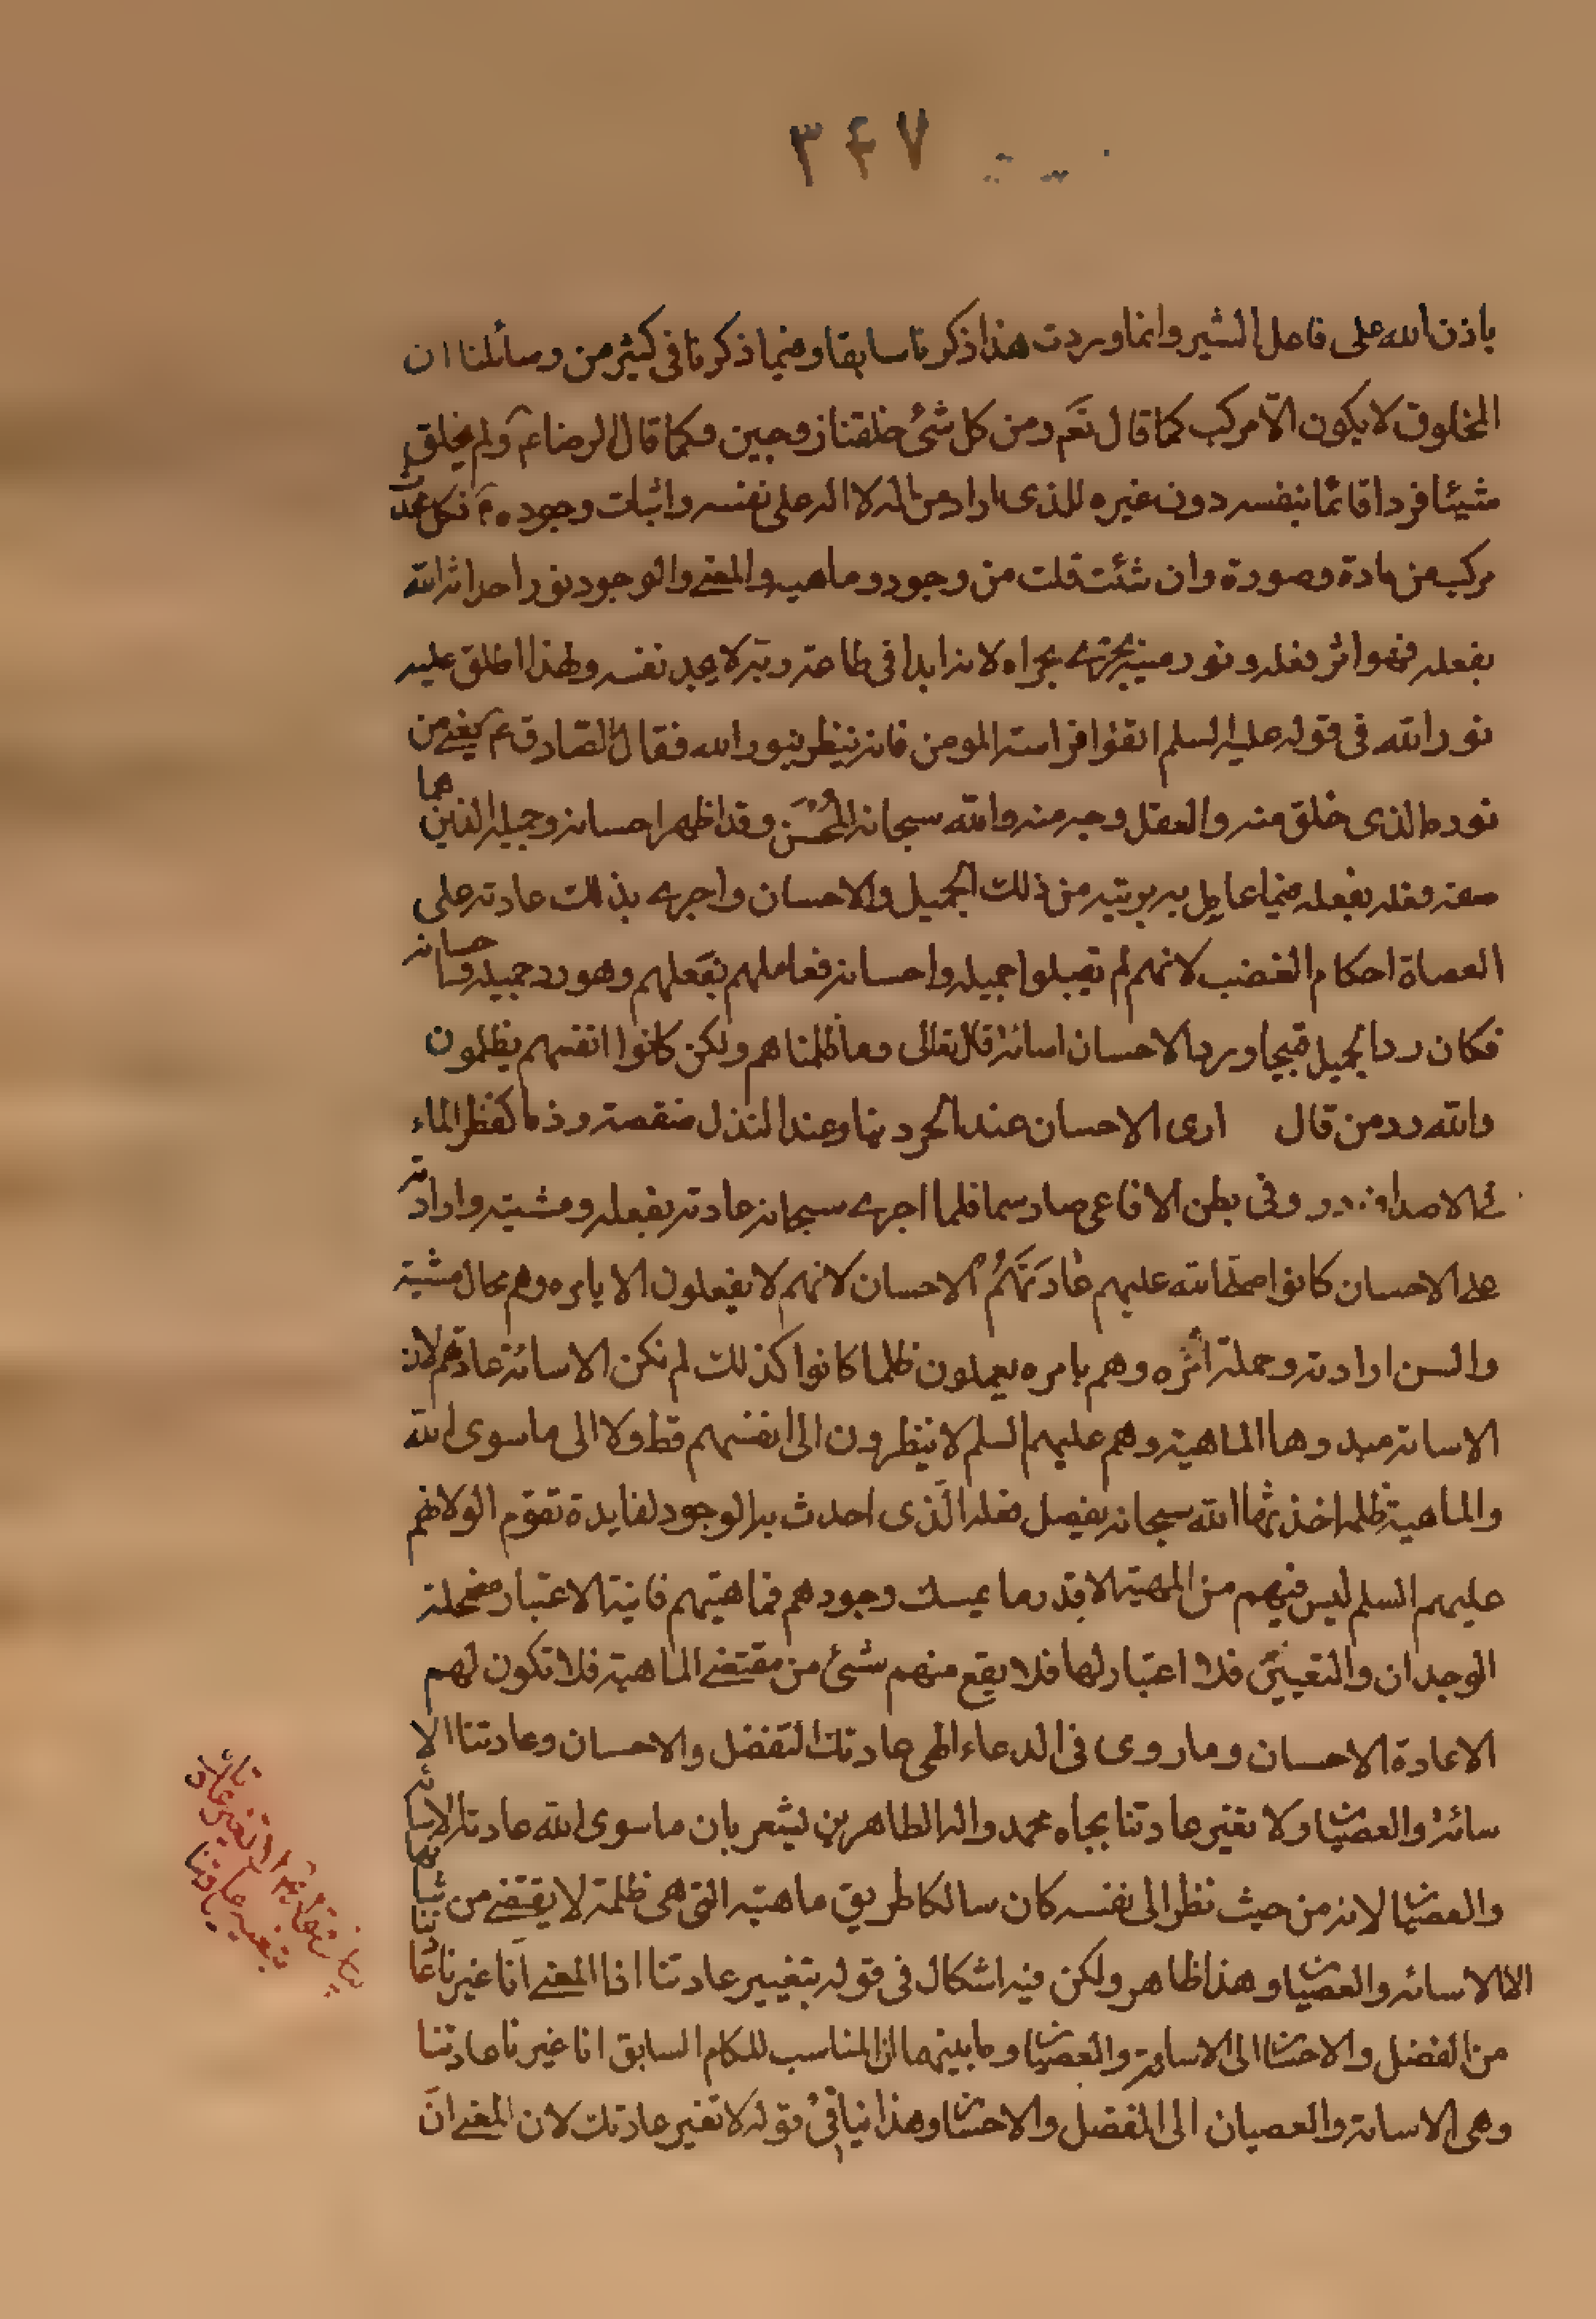 ٣٤٧
باذن الله على فاعل الشر وانما وردت هذا ذكرنا سابقا وفيما ذكرنا في كثير من رسائلنا ان
المخلوق لا يكون الا مركب كما قال تعم ومن كل شئ خلقنا زوجين وكما قال الرضا عم ولم يخلق
شيئا فردا قائما بنفسه دون غيره للذى اراد من الدلالة على نفسه واثبات وجوده فكل
مركب من مادة وصورة وان شئت قلت من وجود وماهية والمعنى والوجود نور احداثه الله
بفعله فهو اثر فعله ونور مبني يجرى مجراه لانه ابدا في طاعة ربه لا يجد نفسه ولهذا اطلق عليه
نور الله في قوله عليه السلم اتقوا فراسة المومن فانه ينظر بنور الله فقال الصادق عم يعنى من
نوره الذى خلق منه والعقل وجه منه والله سبحانه المحسن وقد اظهر احسانه وجميله الذين هما
صفة فعله بفعله فيما عامل به بريته من ذلك الجميل والاحسان واجرى بذلك عادته على
العصاة احكام الغضب لانهم لم يقبلوا جميله واحسانه فعاملهم بفعلهم وهو رد جميله واحسانه
فكان رد الجميل قبيحا ورد الاحسان اسائة قال تعالى وما ظلمناهم ولكن كانوا انفسهم يظلمون
والله در من قال ارى الاحسان عند الحر دينا وعند النذل منقصة وذما كقطر الماء
في الاصداف در وفي بطن الافاعى صار سما فلما اجرى سبحانه عادته بفعله ومشيته وارادته
على الاحسان كانوا صلى الله عليهم عادتهم الاحسان لانهم لا يفعلون الا بامره وهم محال مشيته
والسن ارادته وحملة اثره وهم بامره يعملون فلما كانوا كذلك لم تكن الاسائة عادتهم لان
الاسائة مبدوها الماهية وهم عليهم السلم لا ينظرون الى انفسهم قط ولا الى ما سوى الله
والماهية ظلمة اخذتها الله سبحانه بفضل فعله الذى احدث به الوجود لفايدة تقوم الولانهم
عليهم السلم ليس فيهم من المهية الا قدر ما يمسك وجودهم فماهيتهم فانية الاعتبار مضمحلة
الوجدان والتعيين فلا اعتبار لها فلا يقع منهم شئ من مقتضى الماهية فلا تكون لهم
الا عادة الاحسان وما روى في الدعاء الهى عادتك التفضل والاحسان وعادتنا الا
سائة والعصيان ولا تغير عادتنا بجاه محمد واله الطاهرين ليشعر بان ما سوى الله عادته الاسائة
والعصيان لانه من حيث نظر الى نفسه كان سالكا طريق ماهيته التى هى ظلمة لا يقتضى من شانها
الا الاسائة والعصيان وهذا ظاهر ولكن فيه اشكال في قوله بتغيير عادتنا اذا المعنى انا غيرنا عادتنا
من الفضل والاحسان الى الاسائة والعصيان وما بينهما اذ المناسب للكلام السابق انا غيرنا عادتنا
وهى الاسائة والعصيان الى الفضل والاحسان وهذا ينافي قوله لا تغير عادتك لان المعنى ان